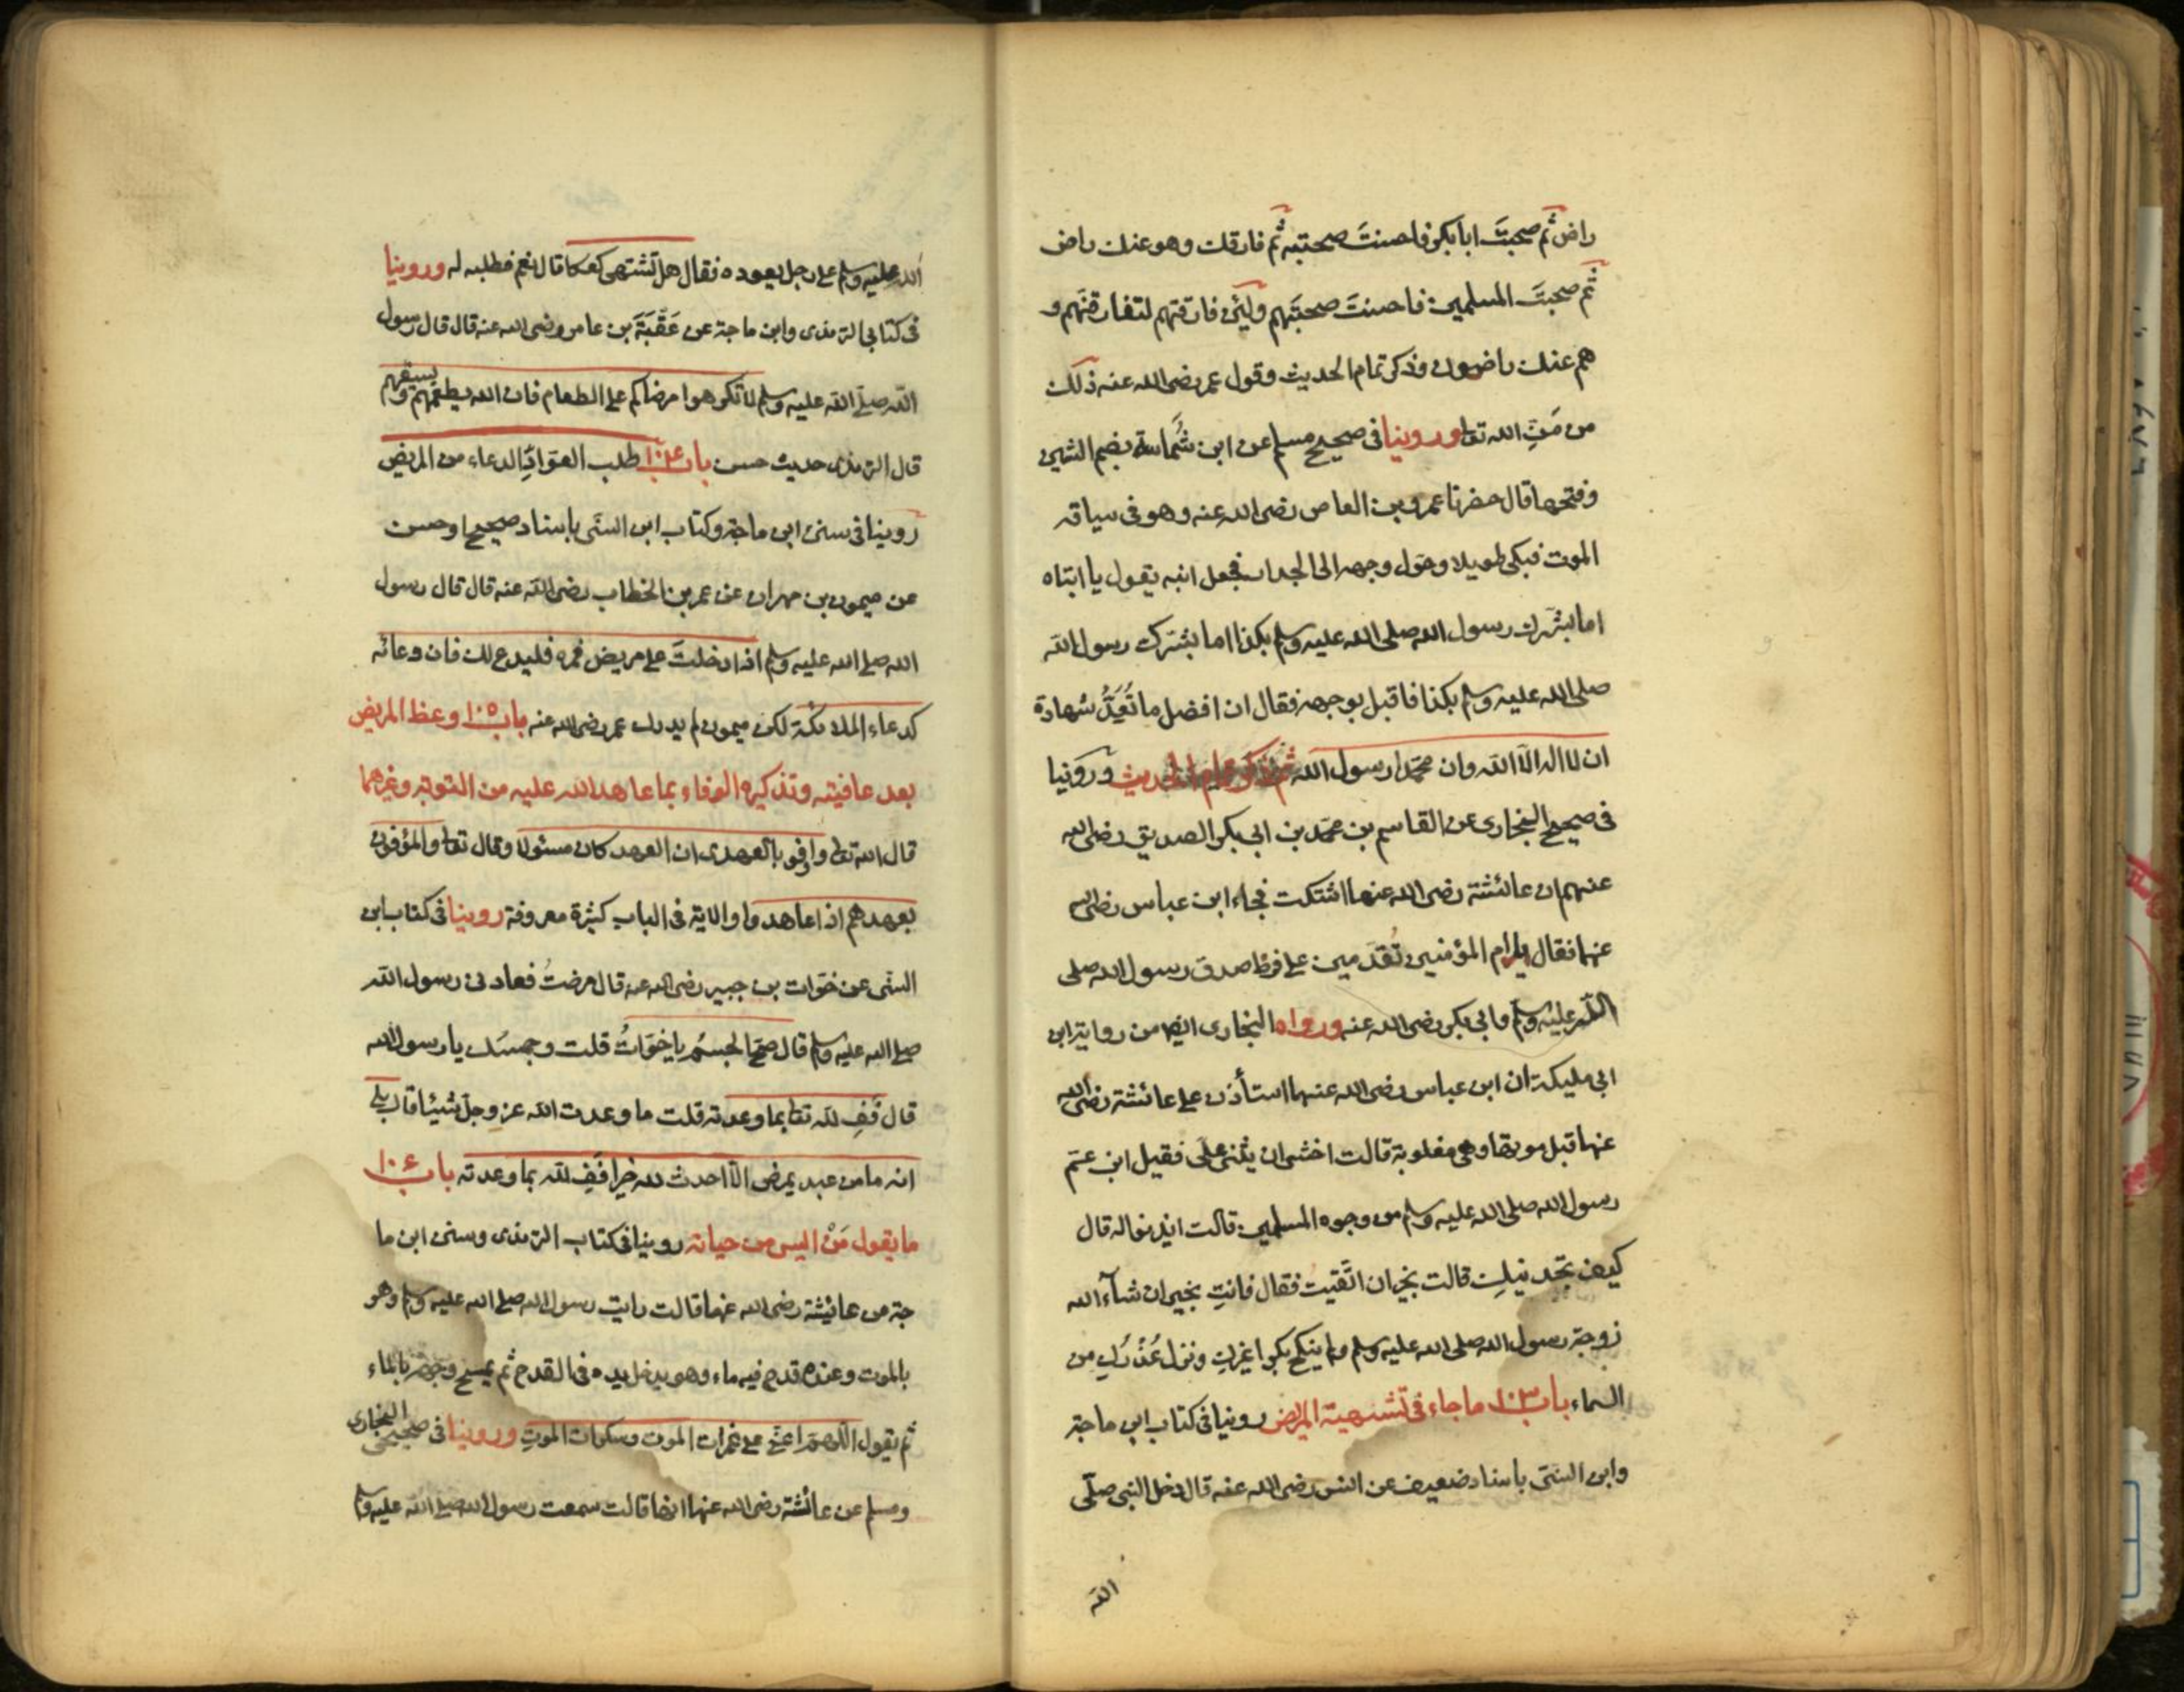 راض ثم صحبتَ ابا بكر فاحسنتَ صحبته ثم فارقك وهو عنك راض
ثم صحبتَ المسلمين فاحسنتَ صحبتَهم ولَئن فارقتهم لتفارقنَهم و
هم عنك راضون وذكر تمام الحديث وقول عمر رضى الله عنه ذلك
من مَنِّ الله تعا وروينا فى صحيح مسلم عن ابن شُماسة بضم الشين
وفتحها قال حضرنا عمرو بن العاص رضى الله عنه وهو فى سياقه
الموت فبكى طويلا وحَوّل وجهه الى الجدار فجعل ابنه يقول يا ابتاه
اما بشّرك رسول الله صلى الله عليه وسلم بكذا اما بشّرك رسول الله
صلى الله عليه وسلم بكذا فاقبل بوجهه فقال ان افضل ما نُعِدُّ شهادة
ان لا اله الا الله وان محمدا رسول الله ثم ذكر تمام الحديث وروينا
فى صحيح البخارى عن القاسم بن محمّد بن ابى بكر الصديق رضى الله
عنهم ان عائشة رضى الله عنها اشتكت فجاء ابن عباس رضى الله
عنهما فقال يا ام المؤمنين تَقدَمين على فرط صدق رسول الله صلى
الله عليه وسلم وابى بكر رضى الله عنه ورواه البخارى ايضا من رواية ابن
ابى مليكة ان ابن عباس رضى الله عنهما استأذن على عائشة رضى الله
عنها قبل موتها وهى مغلوبة قالت اخشى ان يثنى علَى فقيل ابن عمّ
رسول الله صلى الله عليه وسلم من وجوه المسلمين قالت ايذنوا له قال
كيف تجدينكِ قالت بخير ان اتّقيت فقال فانتِ بخير ان شآء الله
زوجة رسول الله صلى الله عليه وسلم ولم ينكح بكرا غيركِ ونزل عُذْرُكِ من
السماء باب ١٠٣ ما جاء فى تشهية المريض روينا فى كتاب ابن ماجة
وابن السنّى باسناد ضعيف عن انس رضى الله عنه قال دخل النبى صلّى
الله
الله عليه وسلم على رجل يعوده فقال هل تشتهى كعكا قال نعم فطلبه له وروينا
فى كتابى الترمذى وابن ماجة عن عَقْبَةَ بن عامر رضى الله عنه قال قال رسول
الله صلّى الله عليه وسلم لا تكرهوا مرضاكم على الطعام فان الله يطعمهم ويسقيهم
قال الترمذى حديث حسن باب ١٠٤ طلب العوّادِ الدعاء من المريض
روينا فى سنن ابن ماجة وكتاب ابن السنّى باسناد صحيح او حسن
عن ميمون بن مهران عن عمر بن الخطاب رضى الله عنه قال قال رسول
الله صلى الله عليه وسلم اذا دخلتَ على مريض فمره فليدع لك فان دعائه
كدعاء الملائكة لكن ميمون لم يدرك عمر رضى الله عنه باب ١٠٥ وعظ المريض
بعد عافيته وتذكيره الوفاء بما عاهد الله عليه من التوبة وغيرهما
قال الله تعا واوفوا بالعهد ان العهد كان مسئولا وقال تعا والموفون
بعهدهم اذا عاهدوا والاية فى الباب كثيرة معروفة روينا فى كتاب ابن
السنّى عن خوّات بن جبير رضى الله عنه قال مرضتُ فعادنى رسول الله
صلى الله عليه وسلم قال صَحّ الجسمُ يا خَوّاتُ قلت وجسمك يا رسول الله
قال فَفِ لله تعا بما وعدته قلت ما وعدت الله عز وجلّ شيئا قال بلى
انه ما من عبد يمرض الّا احدث لله خيرا فَفِ لله بما وعدته باب ١٠٦
ما يقول مَنْ ايس من حياته روينا فى كتاب الترمذى وسنن ابن ما
جة عن عائيشة رضى الله عنها قالت رايت رسول الله صلى الله عليه وسلم وهو
بالموت وعنده قدح فيه ماء وهو يدخل يده فى القدح ثم يمسح وجهه بالماء
ثم يقول اللهمّ اعنّى على غمرات الموت وسكرات الموتِ وروينا فى صحيحى البخارى
ومسلم عن عائشة رضى الله عنها انها قالت سمعت رسول الله صلى الله عليه وسلم